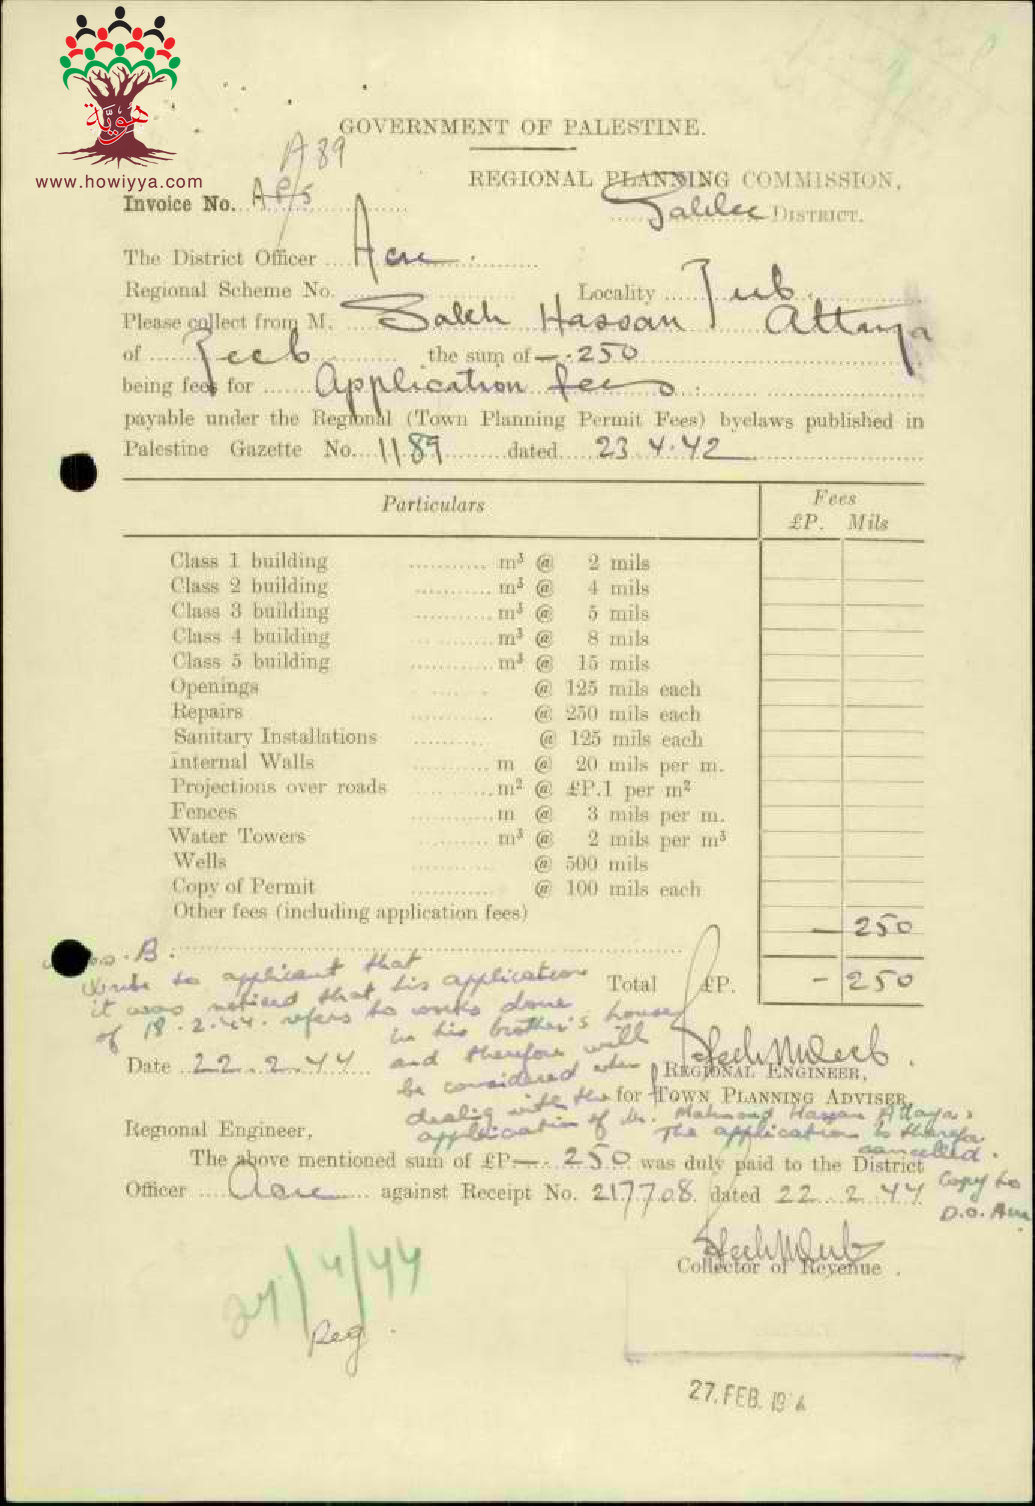 هوية
www.howiyya.com
GOVERNMENT OF PALESTINE.
A 89
REGIONAL PLANNING COMMISSION,
Invoice No.
Galilee DISTRICT.
The District Officer .... Acre
Regional Scheme No. ........ Locality .... Zeeb
Please collect from M. .... Saleh Hassan Attaya
of .... Zeeb .... the sum of — . 250
being fees for .... Application fees
payable under the Regional (Town Planning Permit Fees) byelaws published in
Palestine Gazette No. 1189 dated 23.4.42
Particulars Fees
£P. Mils
Class 1 building ........... m³ @ 2 mils
Class 2 building ........... m³ @ 4 mils
Class 3 building ........... m³ @ 5 mils
Class 4 building ........... m³ @ 8 mils
Class 5 building ........... m³ @ 15 mils
Openings ........... @ 125 mils each
Repairs ........... @ 250 mils each
Sanitary Installations ........... @ 125 mils each
Internal Walls ........... m @ 20 mils per m.
Projections over roads ........... m² @ £P.1 per m²
Fences ........... m @ 3 mils per m.
Water Towers ........... m³ @ 2 mils per m³
Wells ........... @ 500 mils
Copy of Permit ........... @ 100 mils each
Other fees (including application fees) — 250
B.
Write to applicant that
it was noticed that his application
of 18.2.44. refers to works done
in his brother's house
and therefore will
be considered when
dealing with the
application of Mr. Mahmoud Hassan Attaya.
The application is therefore
cancelled.
Copy to
D.O. Acre
Total £P. — 250
Date 22.2.44
REGIONAL ENGINEER,
for TOWN PLANNING ADVISER.
Regional Engineer,
The above mentioned sum of £P — . 250 was duly paid to the District
Officer .... Acre .... against Receipt No. 217708 dated 22.2.44
Collector of Revenue .
27/4/44
Reg
27. FEB. 19